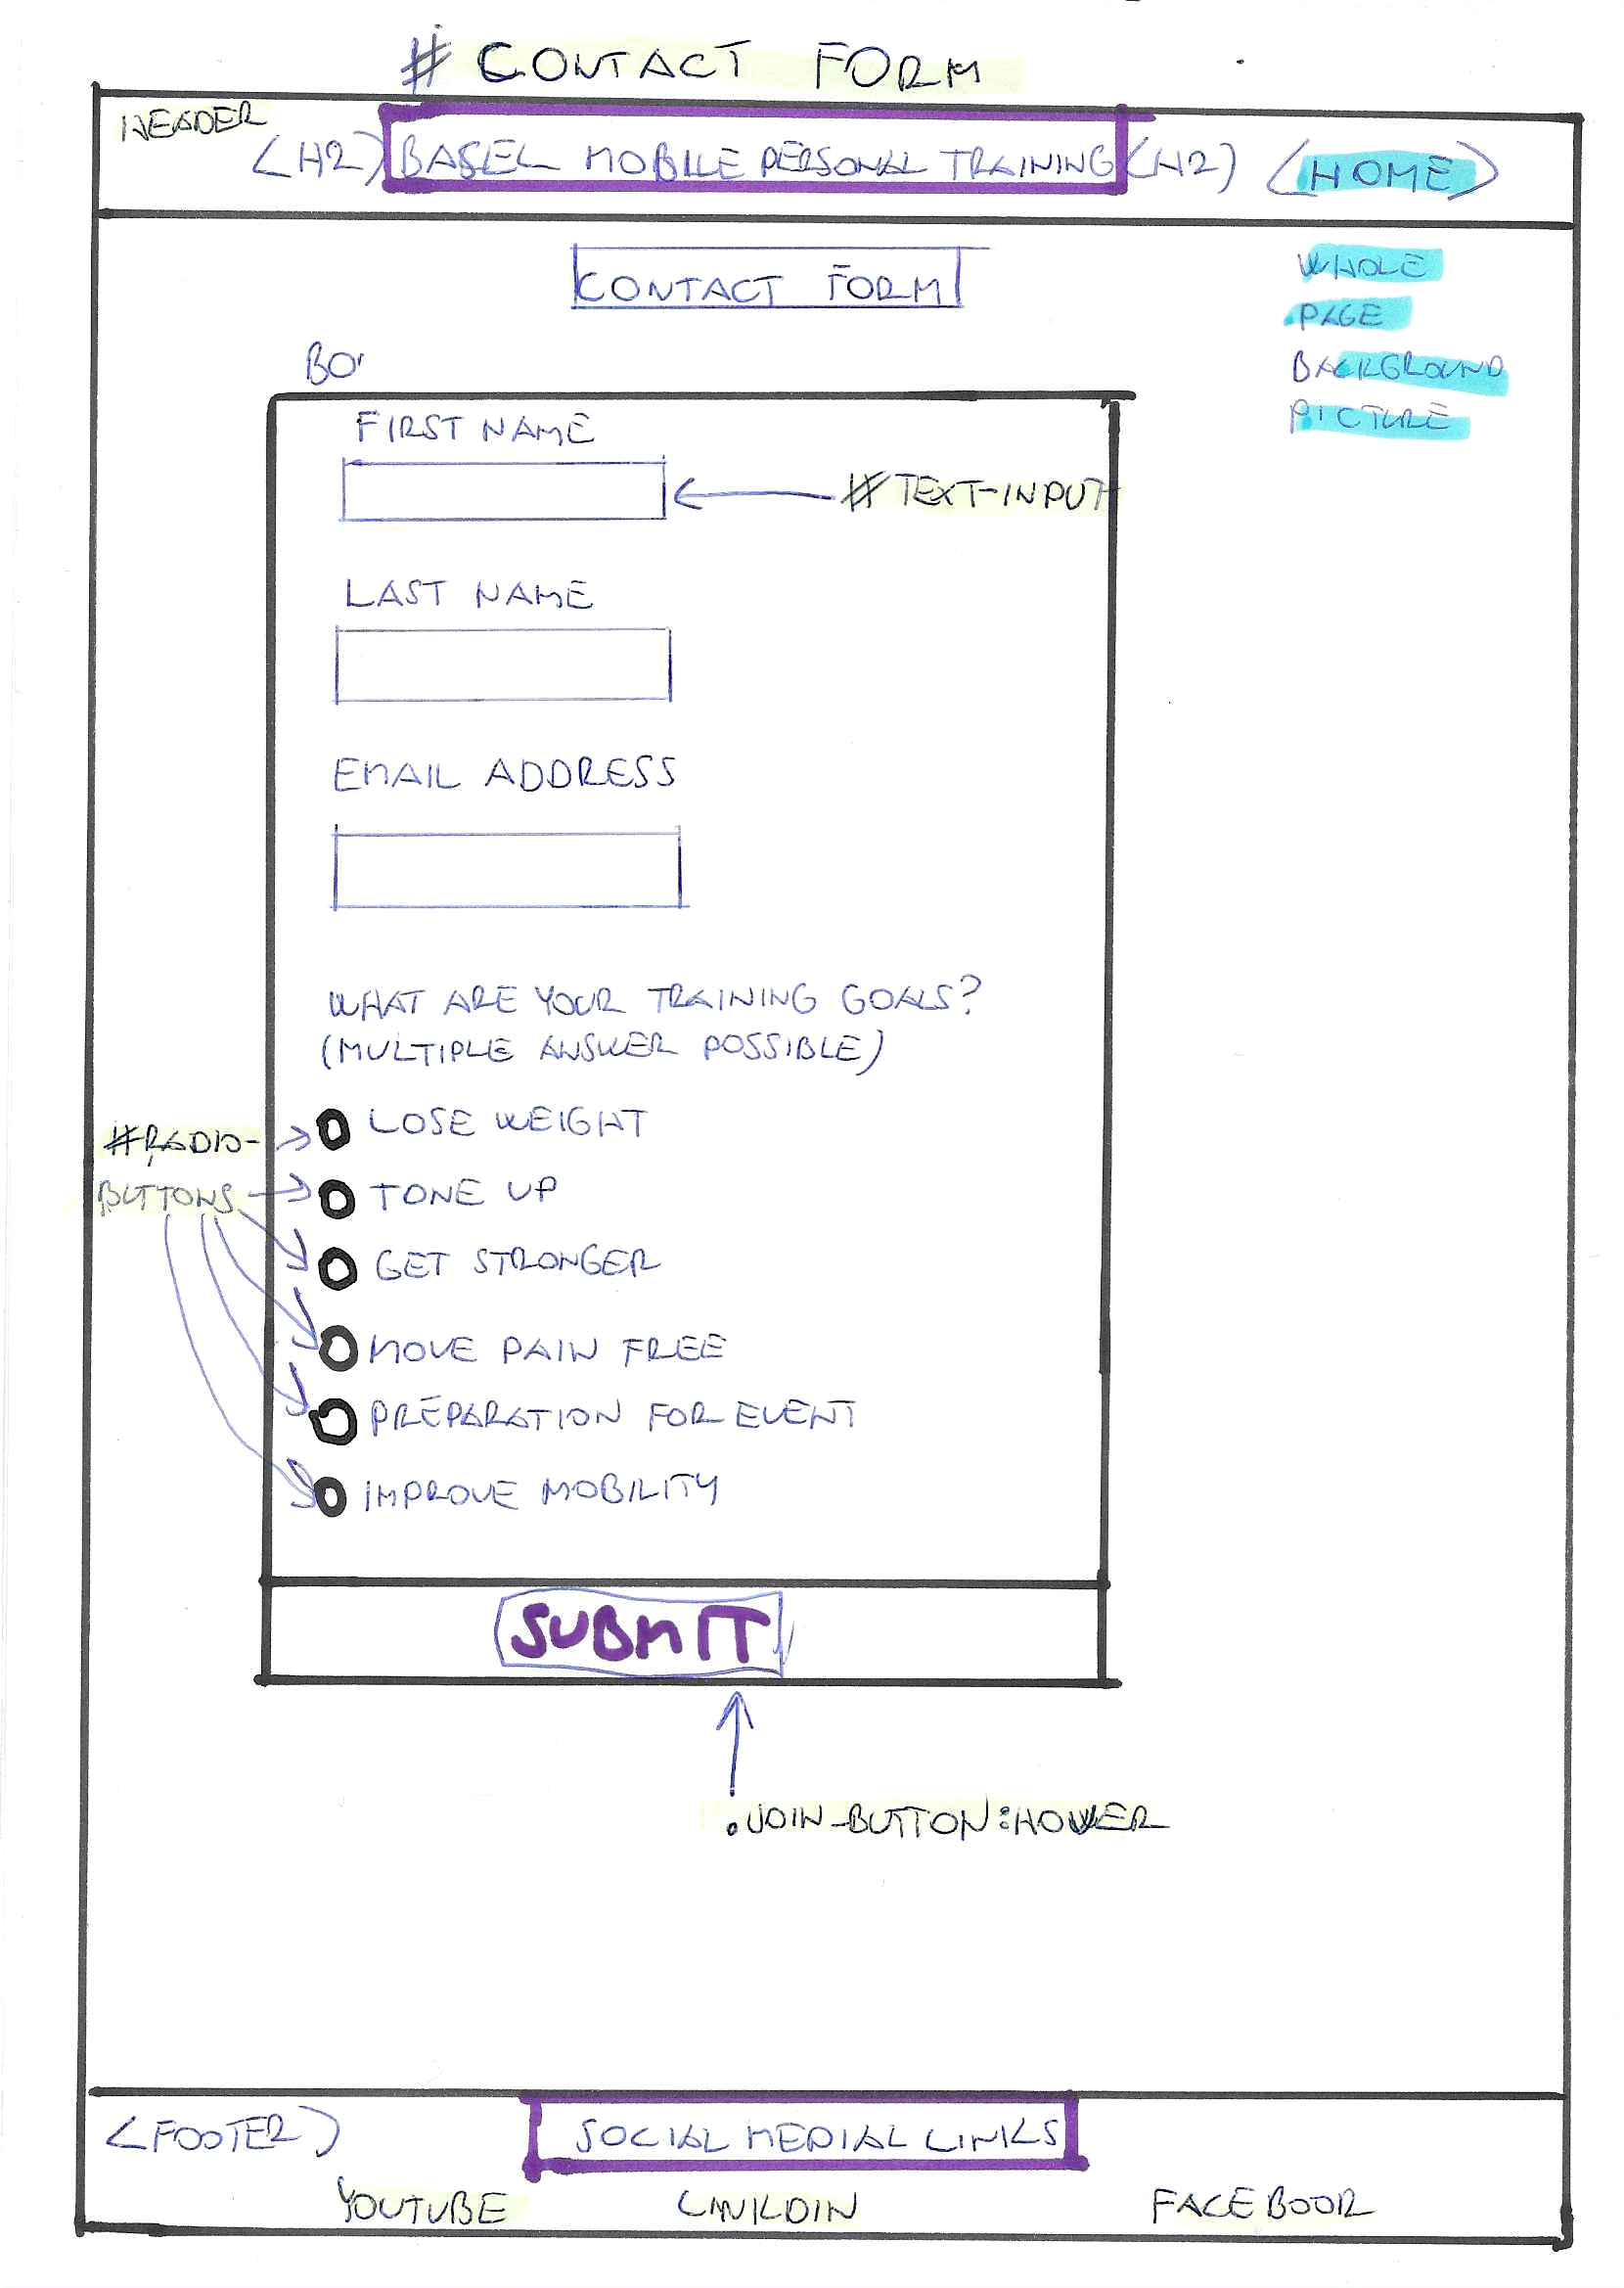 # CONTACT FORM
HEADER
<H2> BASEL MOBILE PERSONAL TRAINING <H2> <HOME>
CONTACT FORM
WHOLE
PAGE
BACKGROUND
PICTURE
BO
FIRST NAME
# TEXT-INPUT
LAST NAME
EMAIL ADDRESS
WHAT ARE YOUR TRAINING GOALS?
(MULTIPLE ANSWER POSSIBLE)
#RADIO-
BUTTONS
LOSE WEIGHT
TONE UP
GET STRONGER
MOVE PAIN FREE
PREPARATION FOR EVENT
IMPROVE MOBILITY
SUBMIT
.JOIN-BUTTON:HOVER
<FOOTER>
SOCIAL MEDIAL LINKS
YOUTUBE LINKDIN FACEBOOK